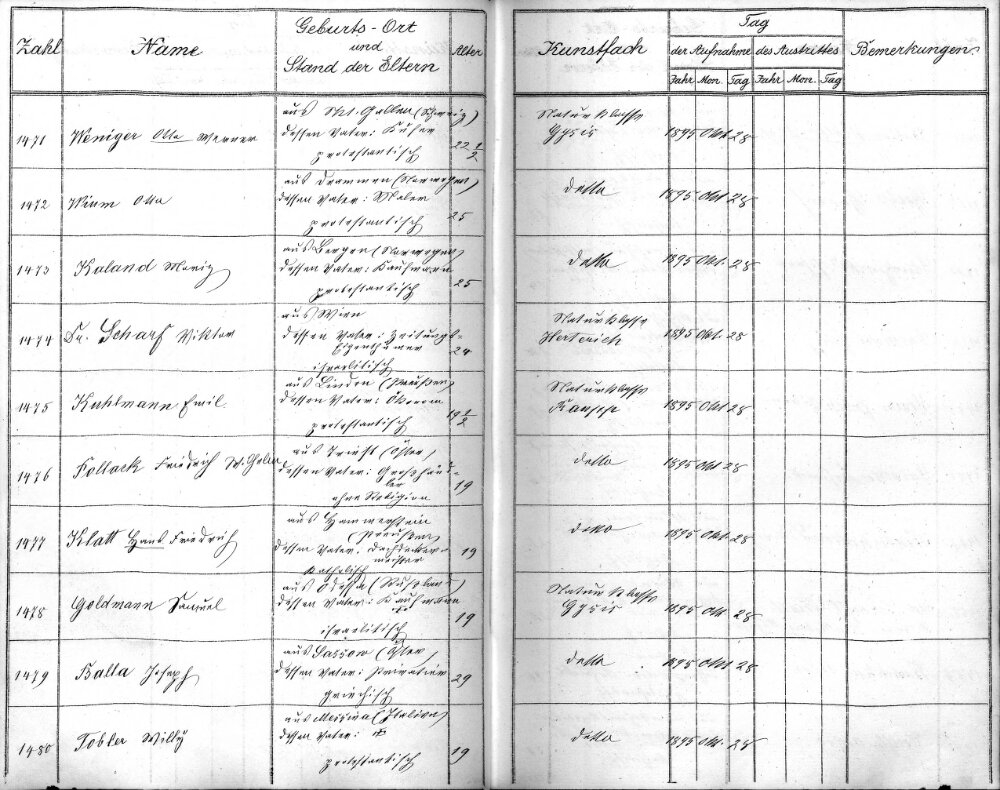 Zahl
Name
Geburts-Ort
und
Stand der Eltern
Alter
Kunstfach
Tag
der Aufnahme
des Austrittes
Jahr Mon. Tag
Jahr Mon. Tag
Bemerkungen
1471 Weniger Otto Werner
aus St. Gallen (Schweiz)
dessen Vater: Küfer
protestantisch
22 1/2
Naturklasse
Gysis
1895 Okt 28
1472 Wium Otto
aus Drammen (Norwegen)
dessen Vater: Maler
protestantisch
25
detto
1895 Okt 28
1473 Kaland Moriz
aus Bergen (Norwegen)
dessen Vater: Kaufmann
protestantisch
25
detto
1895 Okt. 28
1474 Dr. Scharf Viktor
aus Wien
dessen Vater: Zeitungs-
Eigenthümer
israelitisch
24
Naturklasse
Herterich
1895 Okt 28
1475 Kuhlmann Emil
aus Linden (Preußen)
dessen Vater:
protestantisch
19 1/2
Naturklasse
Raupp
1895 Okt 28
1476 Pollack Friedrich
aus Triest (Öster.)
dessen Vater: Großhänd-
ler
ohne Religion
19
detto
1895 Okt 28
1477 Klatt Hans Friedrich
aus Hammerstein
(Preußen)
dessen Vater: Dachdecker-
meister
katholisch
19
detto
1895 Okt. 28
1478 Goldmann Samuel
aus Odessa (Rußland)
dessen Vater: Kaufmann
israelitisch
19
Naturklasse
Gysis
1895 Okt. 28
1479 Balla Joseph
aus Sassow (Öster.)
dessen Vater: Privatier
griechisch
29
detto
1895 Okt 28
1480 Tobler Willy
aus Messina (Italien)
dessen Vater: +
protestantisch
19
detto
1895 Okt. 28